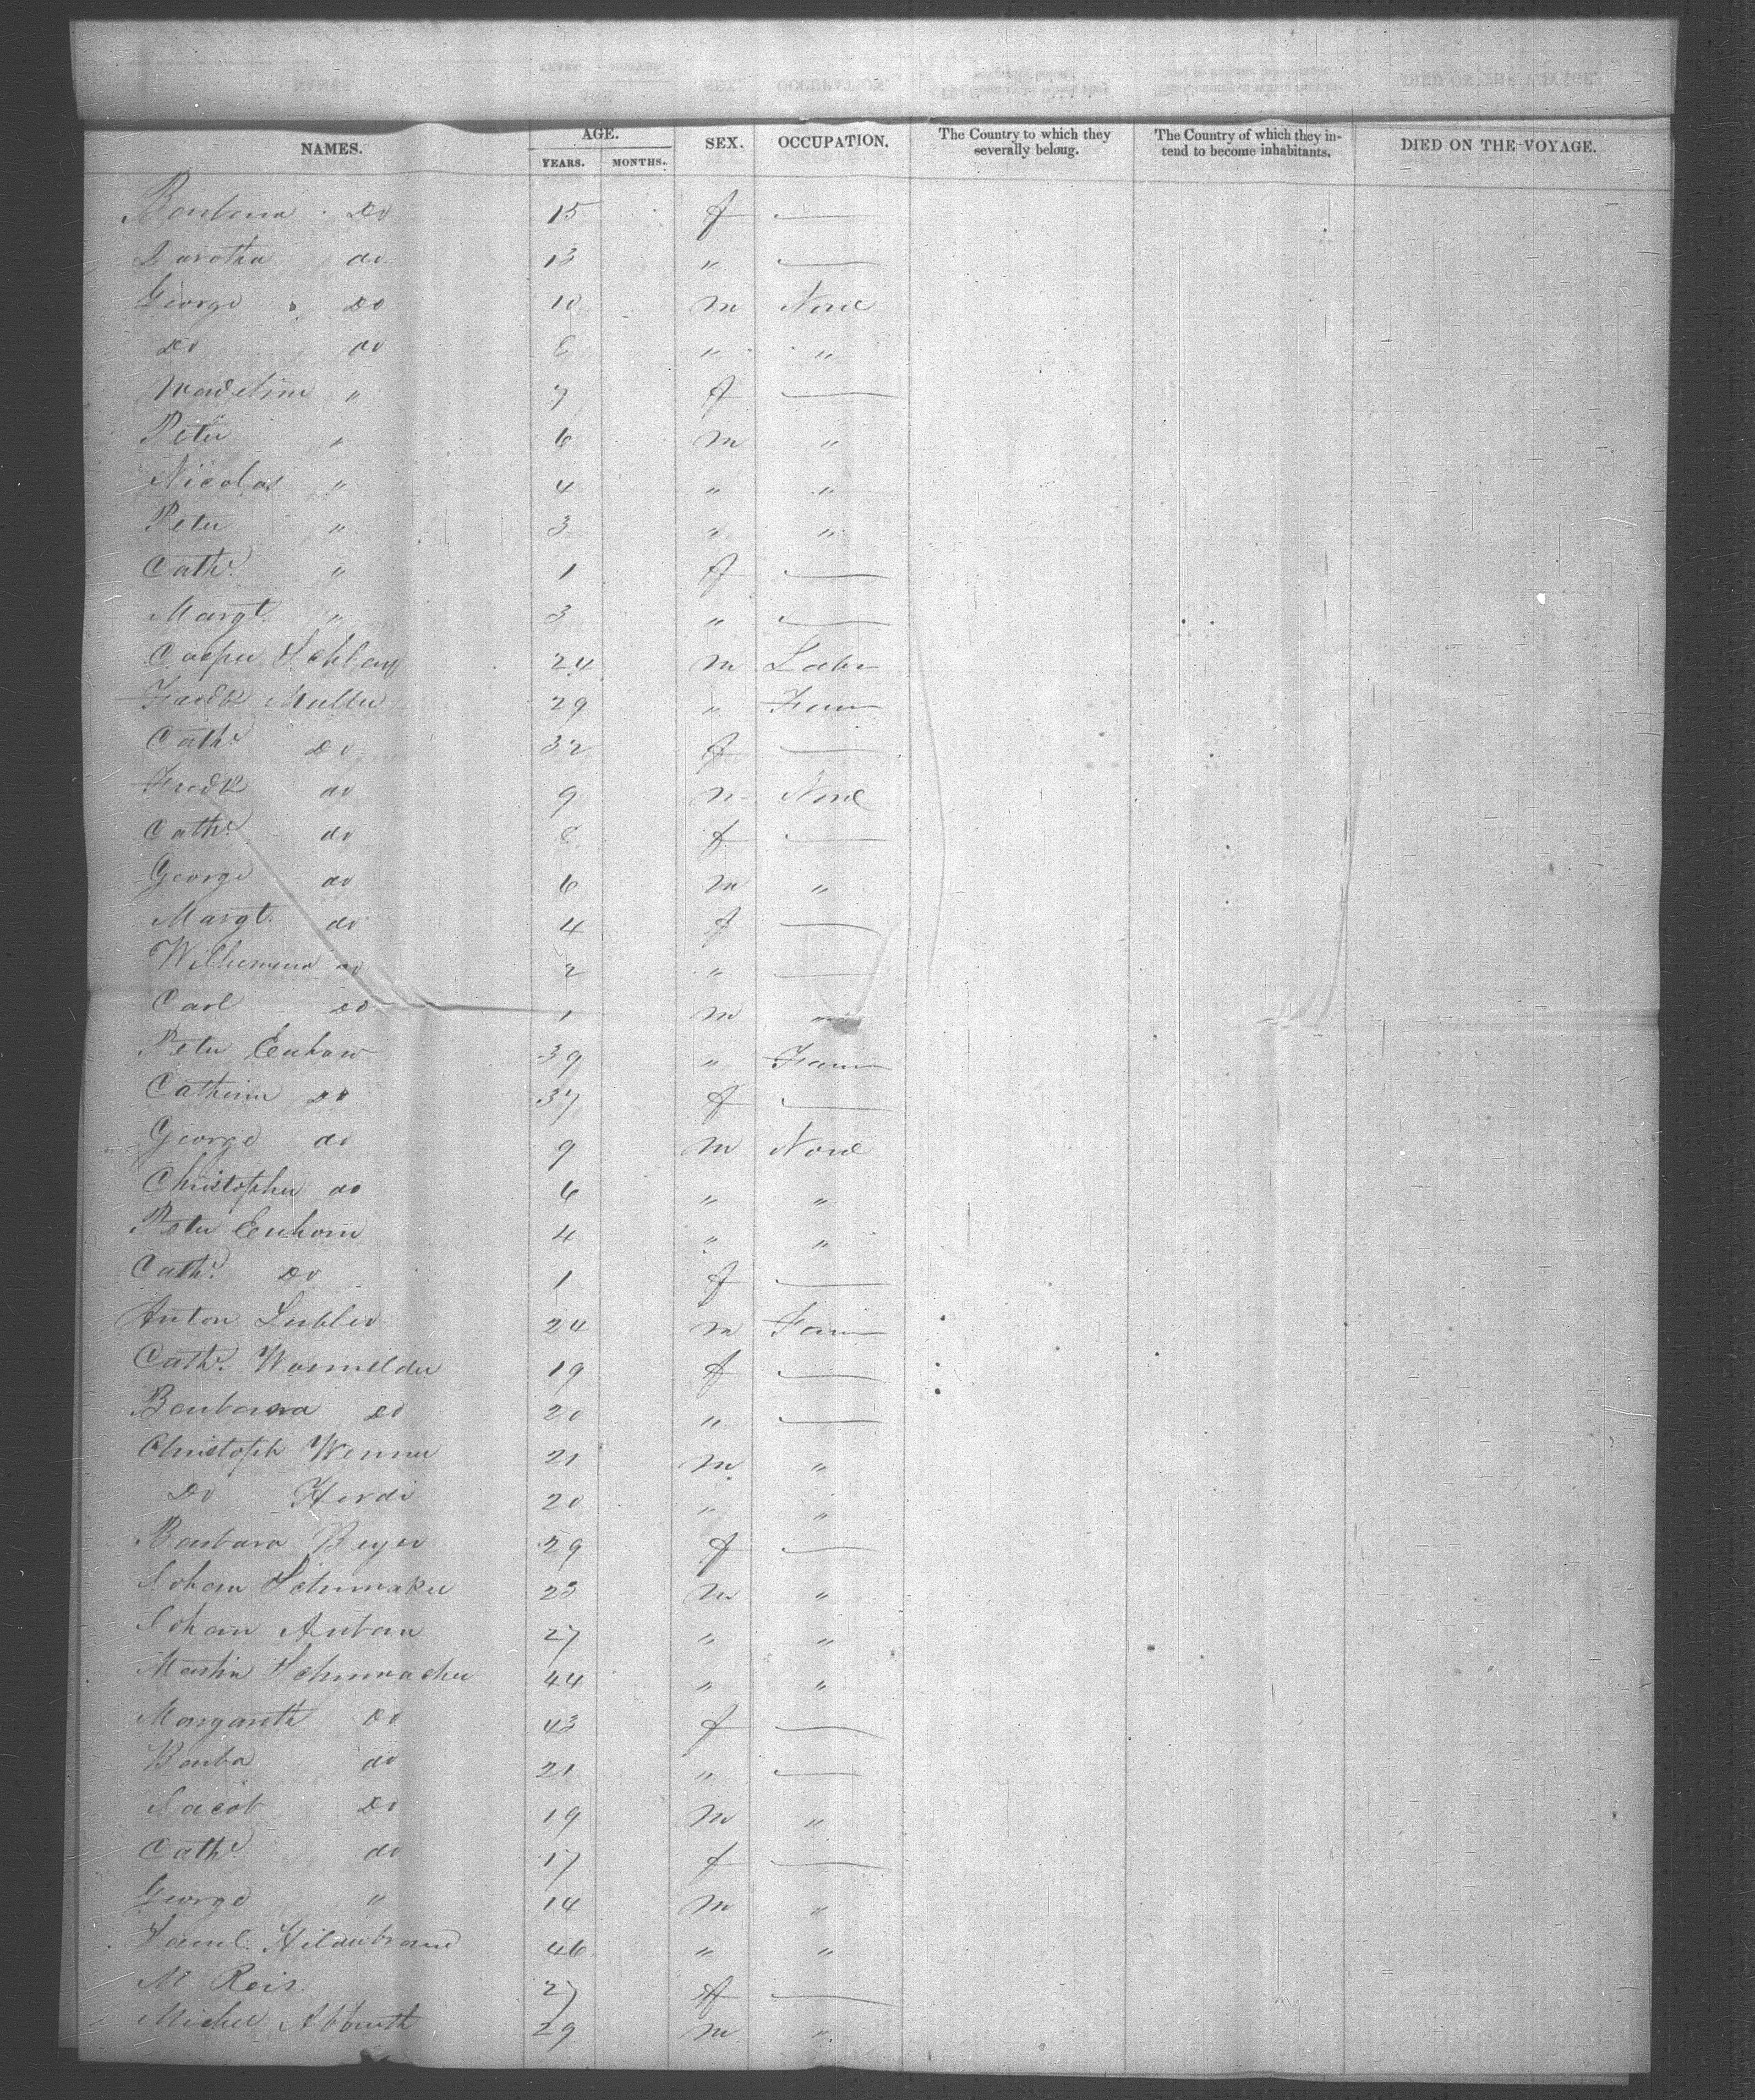 NAMES. AGE. YEARS. MONTHS. SEX. OCCUPATION. The Country to which they severally belong. The Country of which they intend to become inhabitants. DIED ON THE VOYAGE.
Barbara Do 15 f —
Dorotha do 13 " —
George Do 10 m None
Do do 8 " "
Madeline " 7 f —
Peter " 6 m "
Nicolas " 4 " "
Peter " 3 " "
Cathe " 1 f —
Margt " 3 " —
Casper 24 m Labr
Fredk Muller 29 " Farm
Cathe Do 32 f —
Fredk do 9 m None
Cathe do 8 f —
George do 6 m "
Margt do 4 f —
Wilhemina do 2 " —
Carl Do 1 m "
Peter 39 " Farm
Catherin Do 37 f —
George do 9 m None
Christopher do 6 " "
Peter Enhorn 4 " "
Cathe Do 1 f —
Anton 24 m Farm
Cathe. 19 f —
Barbara Do 20 " —
Christoph Wenner 21 m "
Do 20 " "
Barbara Beyer 29 f —
Johan Schumaker 23 m "
Johan 27 " "
Martin Schumacher 44 " "
Margareth Do 43 f —
Barba do 21 " —
Jacob Do 19 m "
Cathe do 17 f —
George " 14 m "
Saml. Hilanbrand 46 " "
M. Reis 27 f —
Michel 29 m "